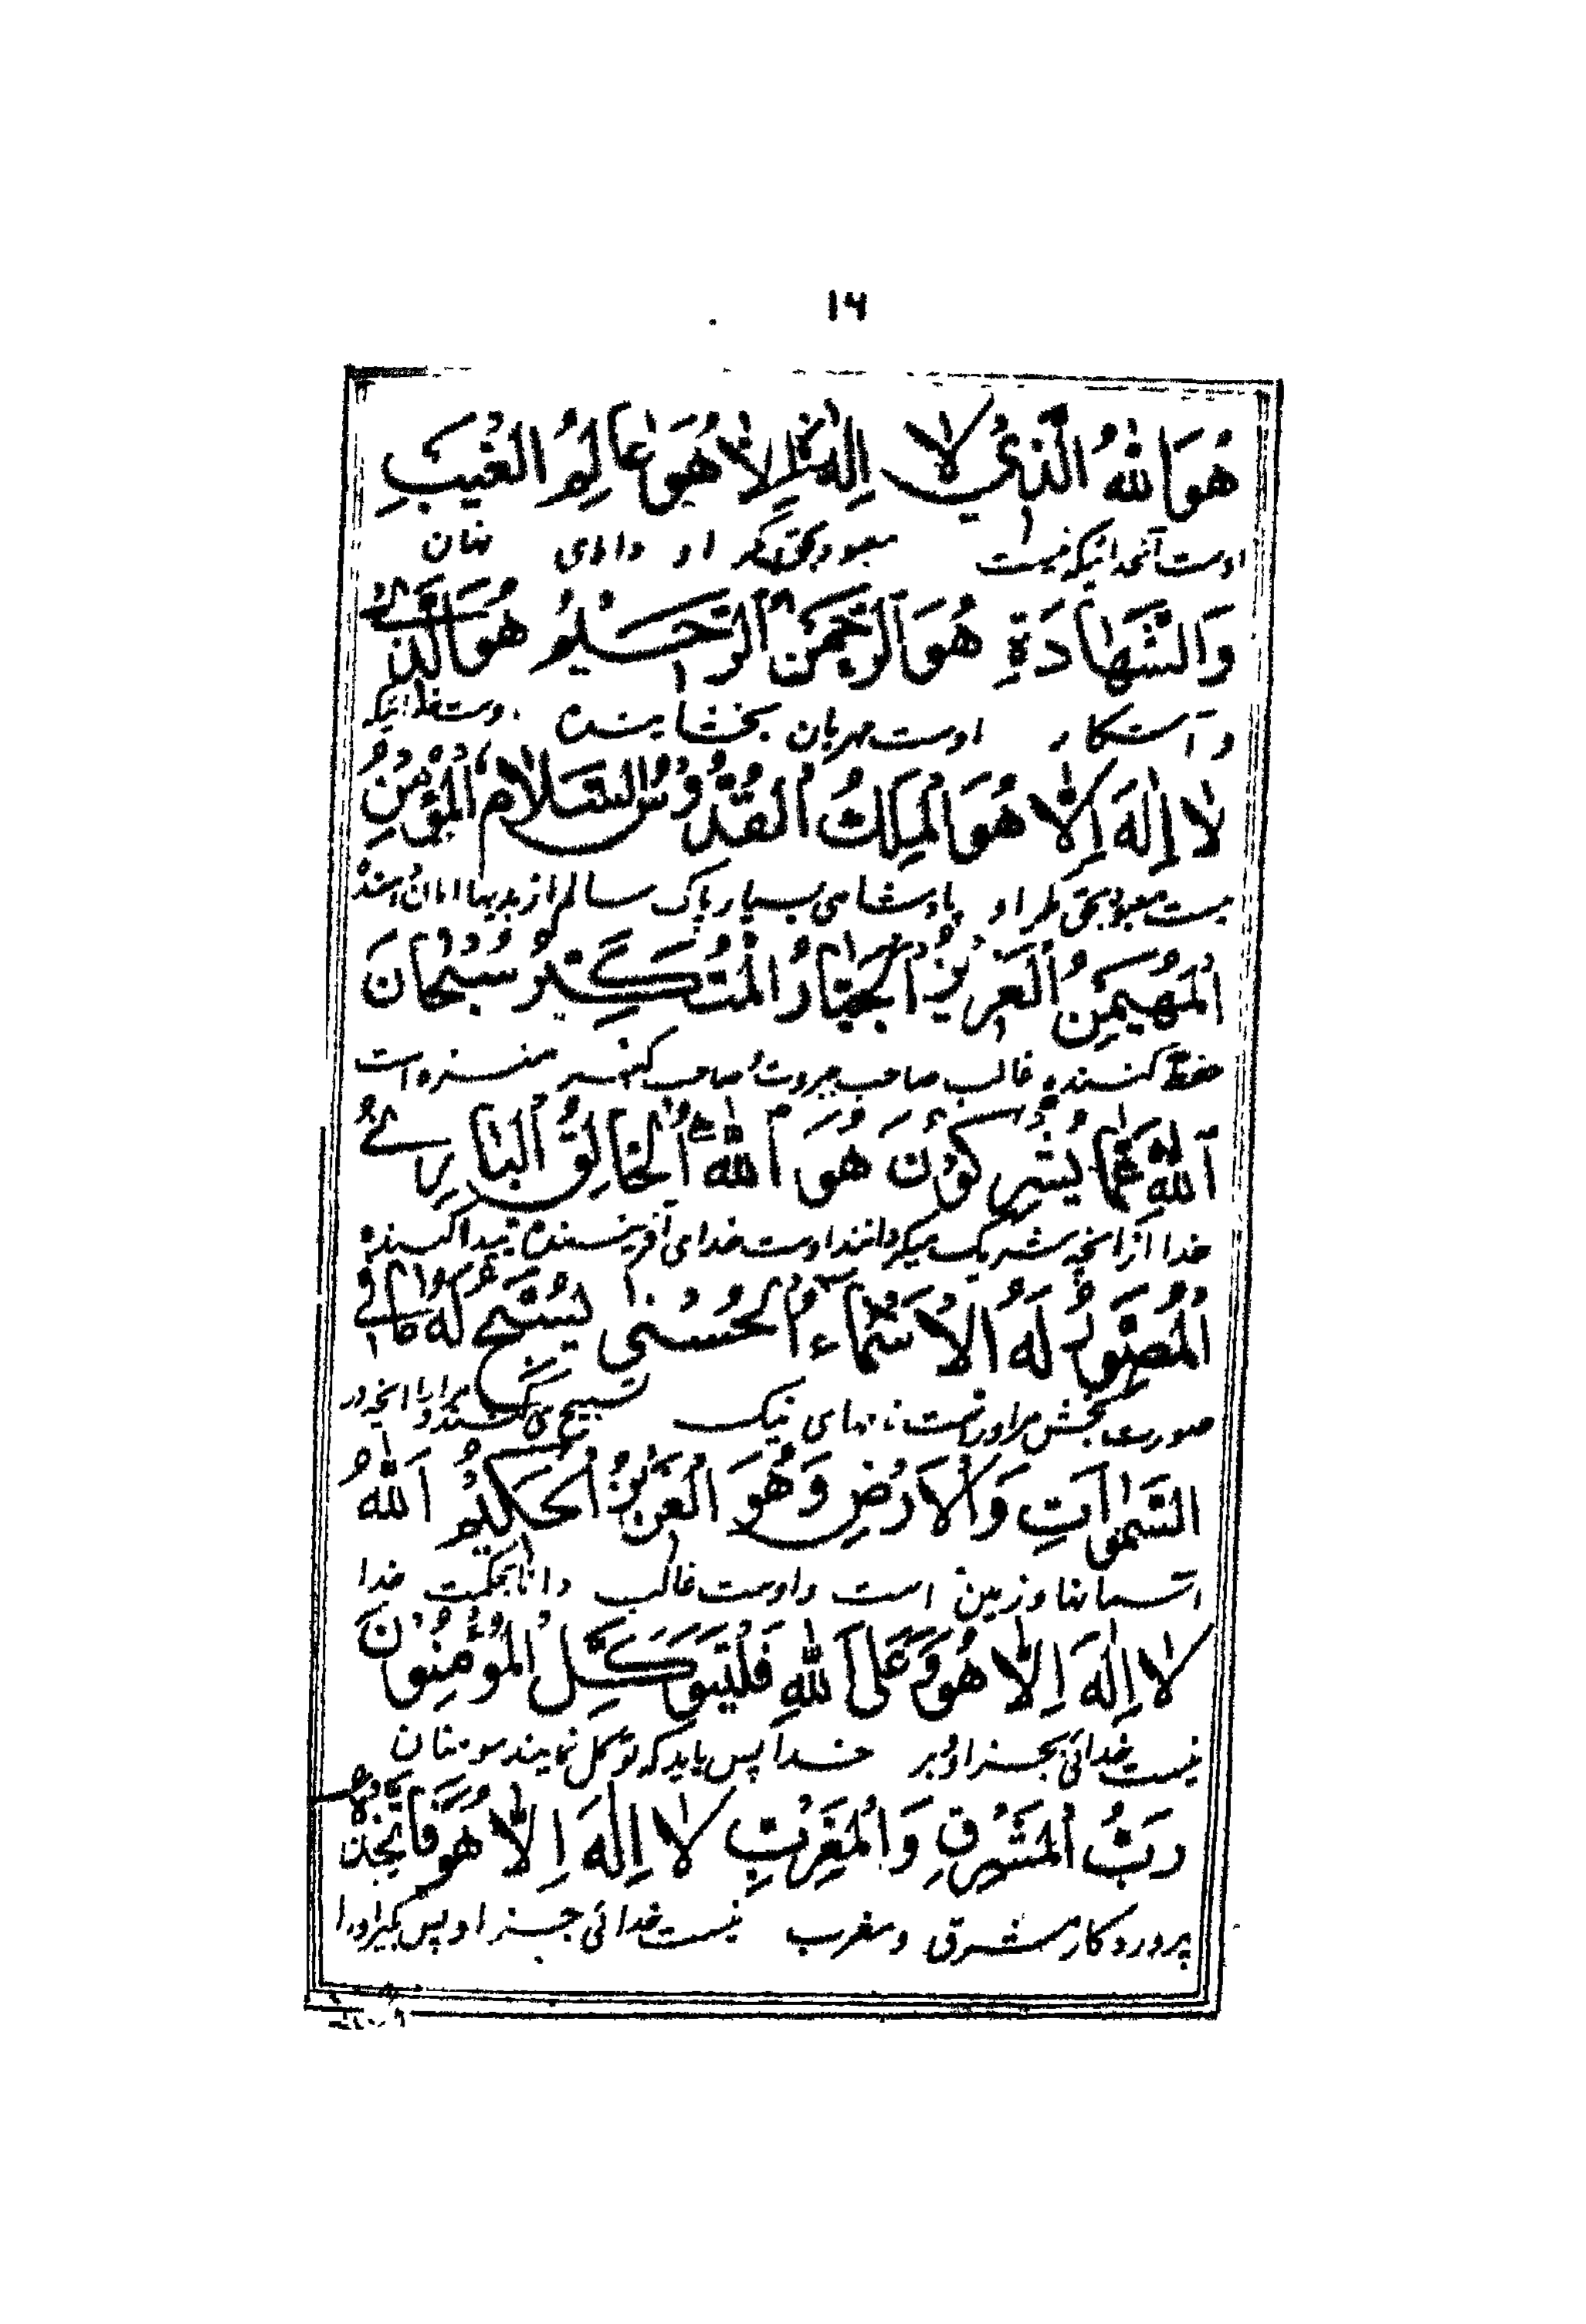 ۱۶
هُوَ اللهُ الَّذِي لَا اِلٰهَ اِلَّا هُوَ عَالِمُ الْغَيْبِ
اوست آنخدائیکه نیست معبود بحق مگر او دانای نهان
وَالشَّهَادَةِ هُوَ الرَّحْمٰنُ الرَّحِيْمُ هُوَ اللهُ الَّذِي
و آشکار اوست مهربان بخشاینده اوست خدائیکه
لَا اِلٰهَ اِلَّا هُوَ الْمَلِكُ الْقُدُّوْسُ السَّلَامُ الْمُؤْمِنُ
نیست معبود بحق مگر او پادشاهی بسیار پاک سالم از بدیها امان دهنده
اَلْمُهَيْمِنُ الْعَزِيْزُ الْجَبَّارُ الْمُتَكَبِّرُ سُبْحَانَ
حفظ کننده غالب صاحب جبروت صاحب کبر منزه است
اَللهِ عَمَّا يُشْرِكُوْنَ هُوَ اللهُ الْخَالِقُ الْبَارِئُ
خدا از آنچه شریک میگردانند اوست خدای آفریننده پیدا کننده
اَلْمُصَوِّرُ لَهُ الْاَسْمَاءُ الْحُسْنٰى يُسَبِّحُ لَهُ مَا فِي
صورت بخش مر او راست نامهای نیک تسبیح می کنند او را آنچه در
السَّمٰوَاتِ وَالْاَرْضِ وَهُوَ الْعَزِيْزُ الْحَكِيْمُ اَللهُ
آسمانها و زمین است و اوست غالب دانا بحکمت خدا
لَا اِلٰهَ اِلَّا هُوَ وَعَلَى اللهِ فَلْيَتَوَكَّلِ الْمُؤْمِنُوْنَ
نیست خدائی بجز او و بر خدا پس باید که توکل نمایند مومنان
رَبُّ الْمَشْرِقِ وَالْمَغْرِبِ لَا اِلٰهَ اِلَّا هُوَ فَاتَّخِذْهُ
پروردگار مشرق و مغرب نیست خدائی جز او پس بگیر او را